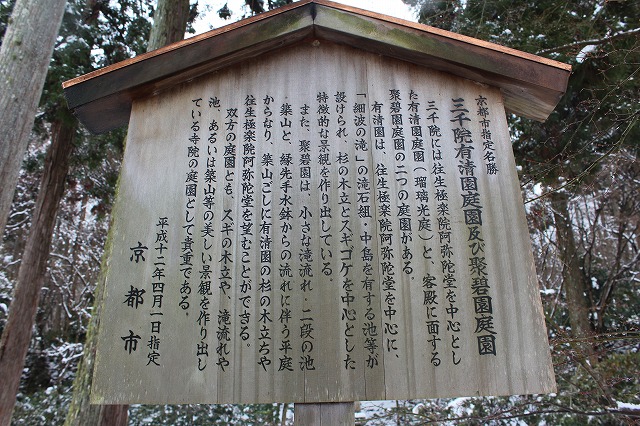 京都市指定名勝
三千院有清園庭園及び聚碧園庭園
三千院には往生極楽院阿弥陀堂を中心とし
た有清園庭園（瑠璃光庭）と、客殿に面する
聚碧園庭園の二つの庭園がある。
有清園は、往生極楽院阿弥陀堂を中心に、
「細波の滝」の滝石組・中島を有する池等が
設けられ、杉の木立とスギゴケを中心とした
特徴的な景観を作り出している。
また、聚碧園は、小さな滝流れ・二段の池
・築山と、縁先手水鉢からの流れに伴う平庭
からなり、築山ごしに有清園の杉の木立ちや
往生極楽院阿弥陀堂を望むことができる。
双方の庭園とも、スギの木立や、滝流れや
池、あるいは築山等の美しい景観を作り出し
ている寺院の庭園として貴重である。
平成十二年四月一日指定
京都市